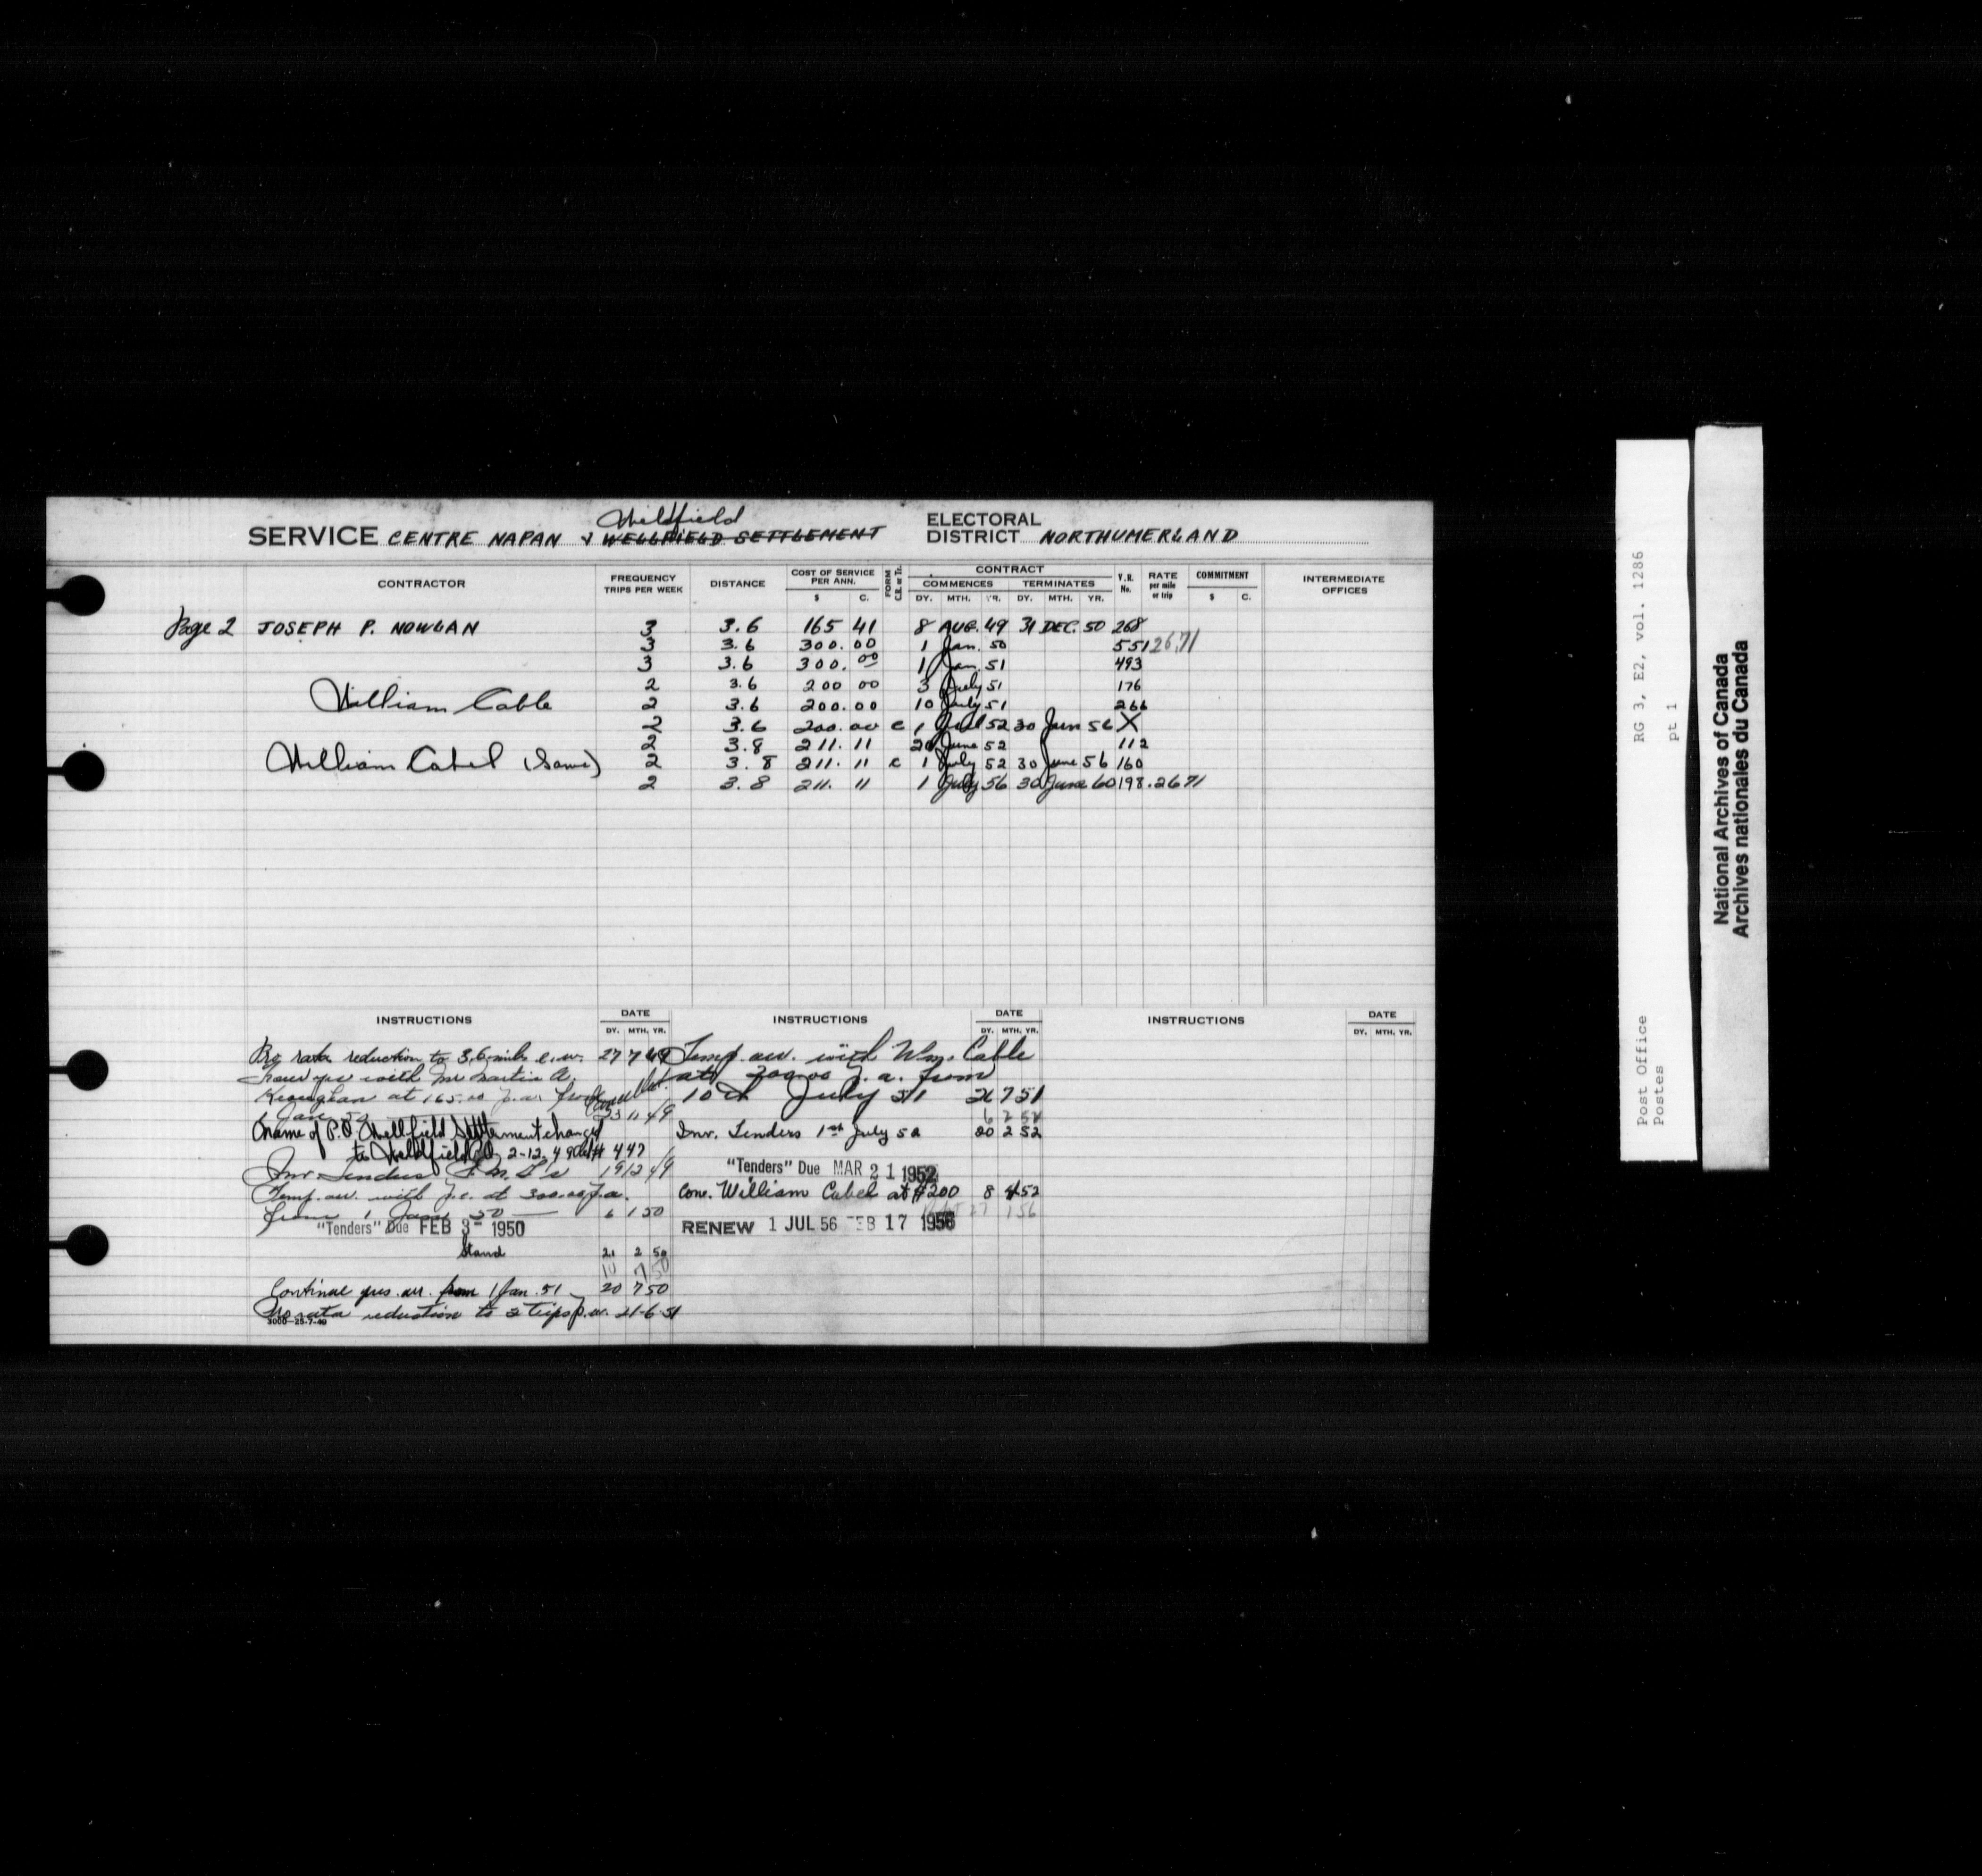 Weldfield
SERVICE CENTRE NAPAN & WELLFIELD SETTLEMENT ELECTORAL DISTRICT NORTHUMERLAND
CONTRACTOR FREQUENCY TRIPS PER WEEK DISTANCE COST OF SERVICE PER ANN. $ C. FORM C.R. or Tr. CONTRACT COMMENCES DY. MTH. YR. TERMINATES DY. MTH. YR. V.R. No. RATE per mile or trip COMMITMENT $ C. INTERMEDIATE OFFICES
Page 2 JOSEPH P. NOWLAN 3 3.6 165 41 8 AUG. 49 31 DEC. 50 268
3 3.6 300.00 1 Jan. 50 551 26.71
3 3.6 300.00 1 Jan. 51 493
2 3.6 200 00 3 July 51 176
William Cable 2 3.6 200.00 10 July 51 266
2 3.6 200.00 c 1 52 30 Jun 56 X
2 3.8 211.11 20 June 52 112
William Cabel (Same) 2 3.8 211.11 c 1 July 52 30 June 56 160
2 3.8 211.11 1 July 56 30 June 60 198 .2671
INSTRUCTIONS DATE DY. MTH. YR.
Pro rata reduction to 3.6 miles e.w. 27 7 49
with Mr Martin A.
at 165.00 p.a. from
1 Jan 50 23 11 49
Name of P.O. Wellfield Settlement changed
to Weldfield P.O. 2-12-49 447
Inv. Tenders 19 12 49
Temp. arr. with J.C. at 300.00 p.a.
from 1 Jan 50 6 1 50
"Tenders" Due FEB 3 1950
Stand 21 2 50
10 7 50
Continue pres. arr. from 1 Jan. 51 20 7 50
Pro rata reduction to 2 trips p.w. 21-6-51
3000-25-7-49
INSTRUCTIONS DATE DY. MTH. YR.
Temp. arr. with Wm. Cable
at 200.00 p.a. from
10th July 51 26 7 51
6 2 52
Inv. Tenders 1st July 52 20 2 52
"Tenders" Due MAR 21 1952
Con. William Cabel at $200 8 4 52
27 1 56
RENEW 1 JUL 56 FEB 17 1956
INSTRUCTIONS DATE DY. MTH. YR.
RG 3, E2, vol. 1286
pt 1
Post Office
Postes
National Archives of Canada
Archives nationales du Canada